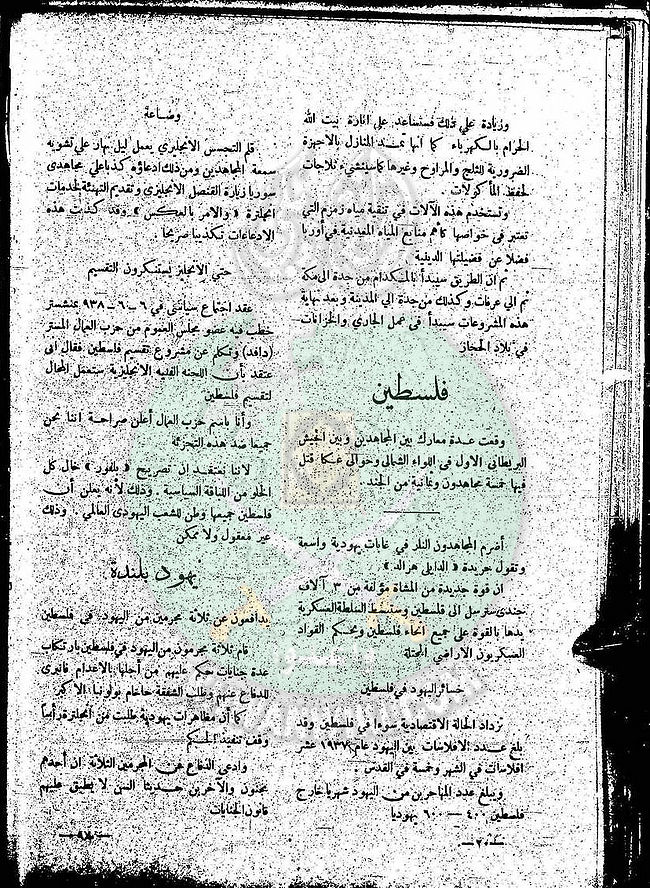 وزيادة على ذلك فستساعد على انارة بيت الله
الحرام بالكهرباء كما أنها تمد المنازل بالاجهزة
الضرورية للثلج والمراوح وغيرها كما ستنشيء ثلاجات
لحفظ المأكولات .
وتستخدم هذه الآلات في تنقية مياه زمزم التي
تعتبر في خواصها كأهم منابع المياه المعدنية في أوربا
فضلا عن فضيلتها الدينية
ثم ان الطريق سيبدأ بالمكدام من جدة الى مكة
ثم الى عرفات وكذلك من جدة الى المدينة وبعد نهاية
هذه المشروعات سيبدأ في عمل المجاري والخزانات
في بلاد الحجاز
فلسطين
وقعت عدة معارك بين المجاهدين وبين الجيش
البريطاني الاول في اللواء الشمالي وحوالي عكا قتل
فيها خمسة مجاهدون وثمانية من الجند
أضرم المجاهدون النار في غابات يهودية واسعة
وتقول جريدة « الدايلى هرالد »
ان قوة جديدة من المشاة مؤلفة من ٣ آلاف
جندى سترسل الى فلسطين وستبسط السلطة العسكرية
يدها بالقوة على جميع انحاء فلسطين ويحكم القواد
العسكريون الاراضي المحتلة
خسائر اليهود في فلسطين
تزداد الحالة الاقتصادية سوءا في فلسطين وقد
بلغ عدد الافلاسات بين اليهود عام ١٩٣٧ عشر
افلاسات في الشهر وخمسة في القدس .
ويبلغ عدد المهاجرين من اليهود شهريا خارج
فلسطين ٤٠٠ — ٦٠٠ يهوديا
— ٢٠ —
وضاعة
قلم التجسس الانجليزي يعمل ليل نهار على تشويه
سمعة المجاهدين ومن ذلك ادعاؤه كذبا على مجاهدى
سوريا زيارة القنصل الانجليزى وتقديم التهنئة لخدمات
انجلترة « والامر بالعكس » وقد كذبت هذه
الادعاءات تكذيبا صريحا .
حتي الانجليز يستنكرون التقسيم
عقد اجتماع سياسى في ٦ - ٦ - ٩٣٨ بمنشستر
خطب فيه عضو مجلس العموم من حزب العمال المستر
وتكلم عن مشروع تقسيم فلسطين فقال انى
أعتقد بأن اللجنة الفنية الانجليزية ستعمل المحال
لتقسيم فلسطين
وأنا باسم حزب العمال أعلن صراحة اننا نحن
جميعا ضد هذه التجزئة
لاننا نعتقد ان تصريح « بلفور » خال كل
الخلو من اللباقة السياسية . وذلك لأنه يعلن أن
فلسطين جميعها وطن للشعب اليهودى العالمي . وذلك
غير معقول ولا ممكن
يهود بلندة
يدافعون عن ثلاثة مجرمين من اليهود في فلسطين
قام ثلاثة مجرمون من اليهود في فلسطين بارتكاب
عدة جنايات حكم عليهم من أجلها بالاعدام فانبرى
للدفاع عنهم وطلب الشفقة حاخام بولونيا الاكبر
كما أن مظاهرات يهودية طلبت من انجلترة رأسا
وقف تنفيذ الحكم
وادعي الدفاع عن المجرمين الثلاثة ان أحدهم
مجنون والآخرين حديثا السن لا يطبق عليهم
قانون الجنايات